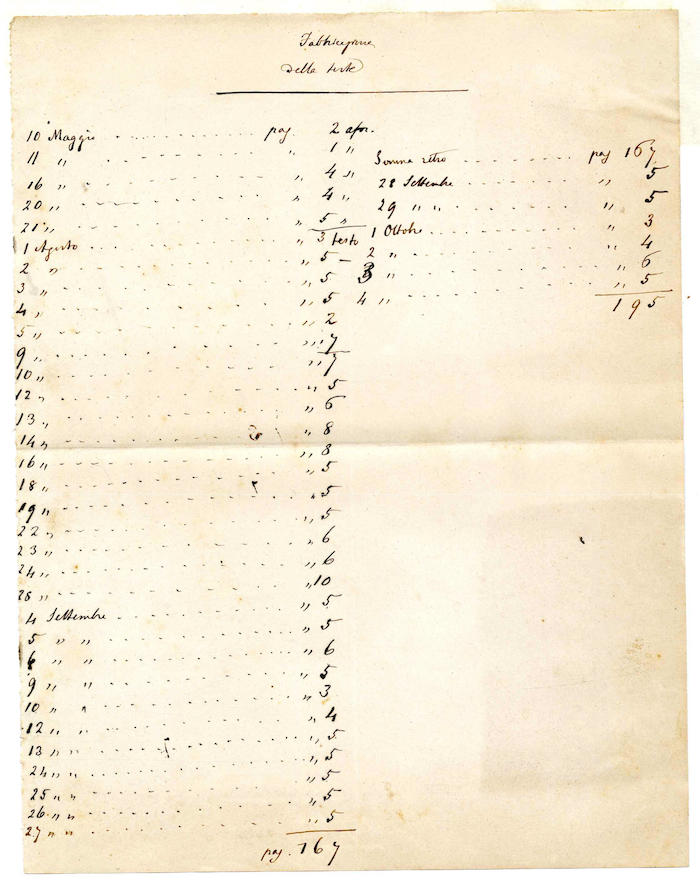 Fabbricazione
della
10 Maggio pag. 2 afor.
11 " " 1 "
16 " " 4 "
20 " " 4 "
21 " " 5 "
1 Agosto " 3 testo
2 " " 5 –
3 " " 5
4 " " 5
5 " " 2
9 " " 7
10 " " 7
12 " " 5
13 " " 6
14 " " 8
16 " " 8
18 " " 5
19 " " 5
22 " " 5
23 " " 6
24 " " 6
28 " " 10
4 Settembre " 5
5 " " " 5
6 " " " 6
9 " " " 5
10 " " " 3
12 " " " 4
13 " " " 5
24 " " " 5
25 " " " 5
26 " " " 5
27 " " " 5
pag. 167
Somma retro pag 167
28 Settembre " 5
29 " " " 5
1 Ottobre " 3
2 " " 4
3 " " 6
4 " " 5
195